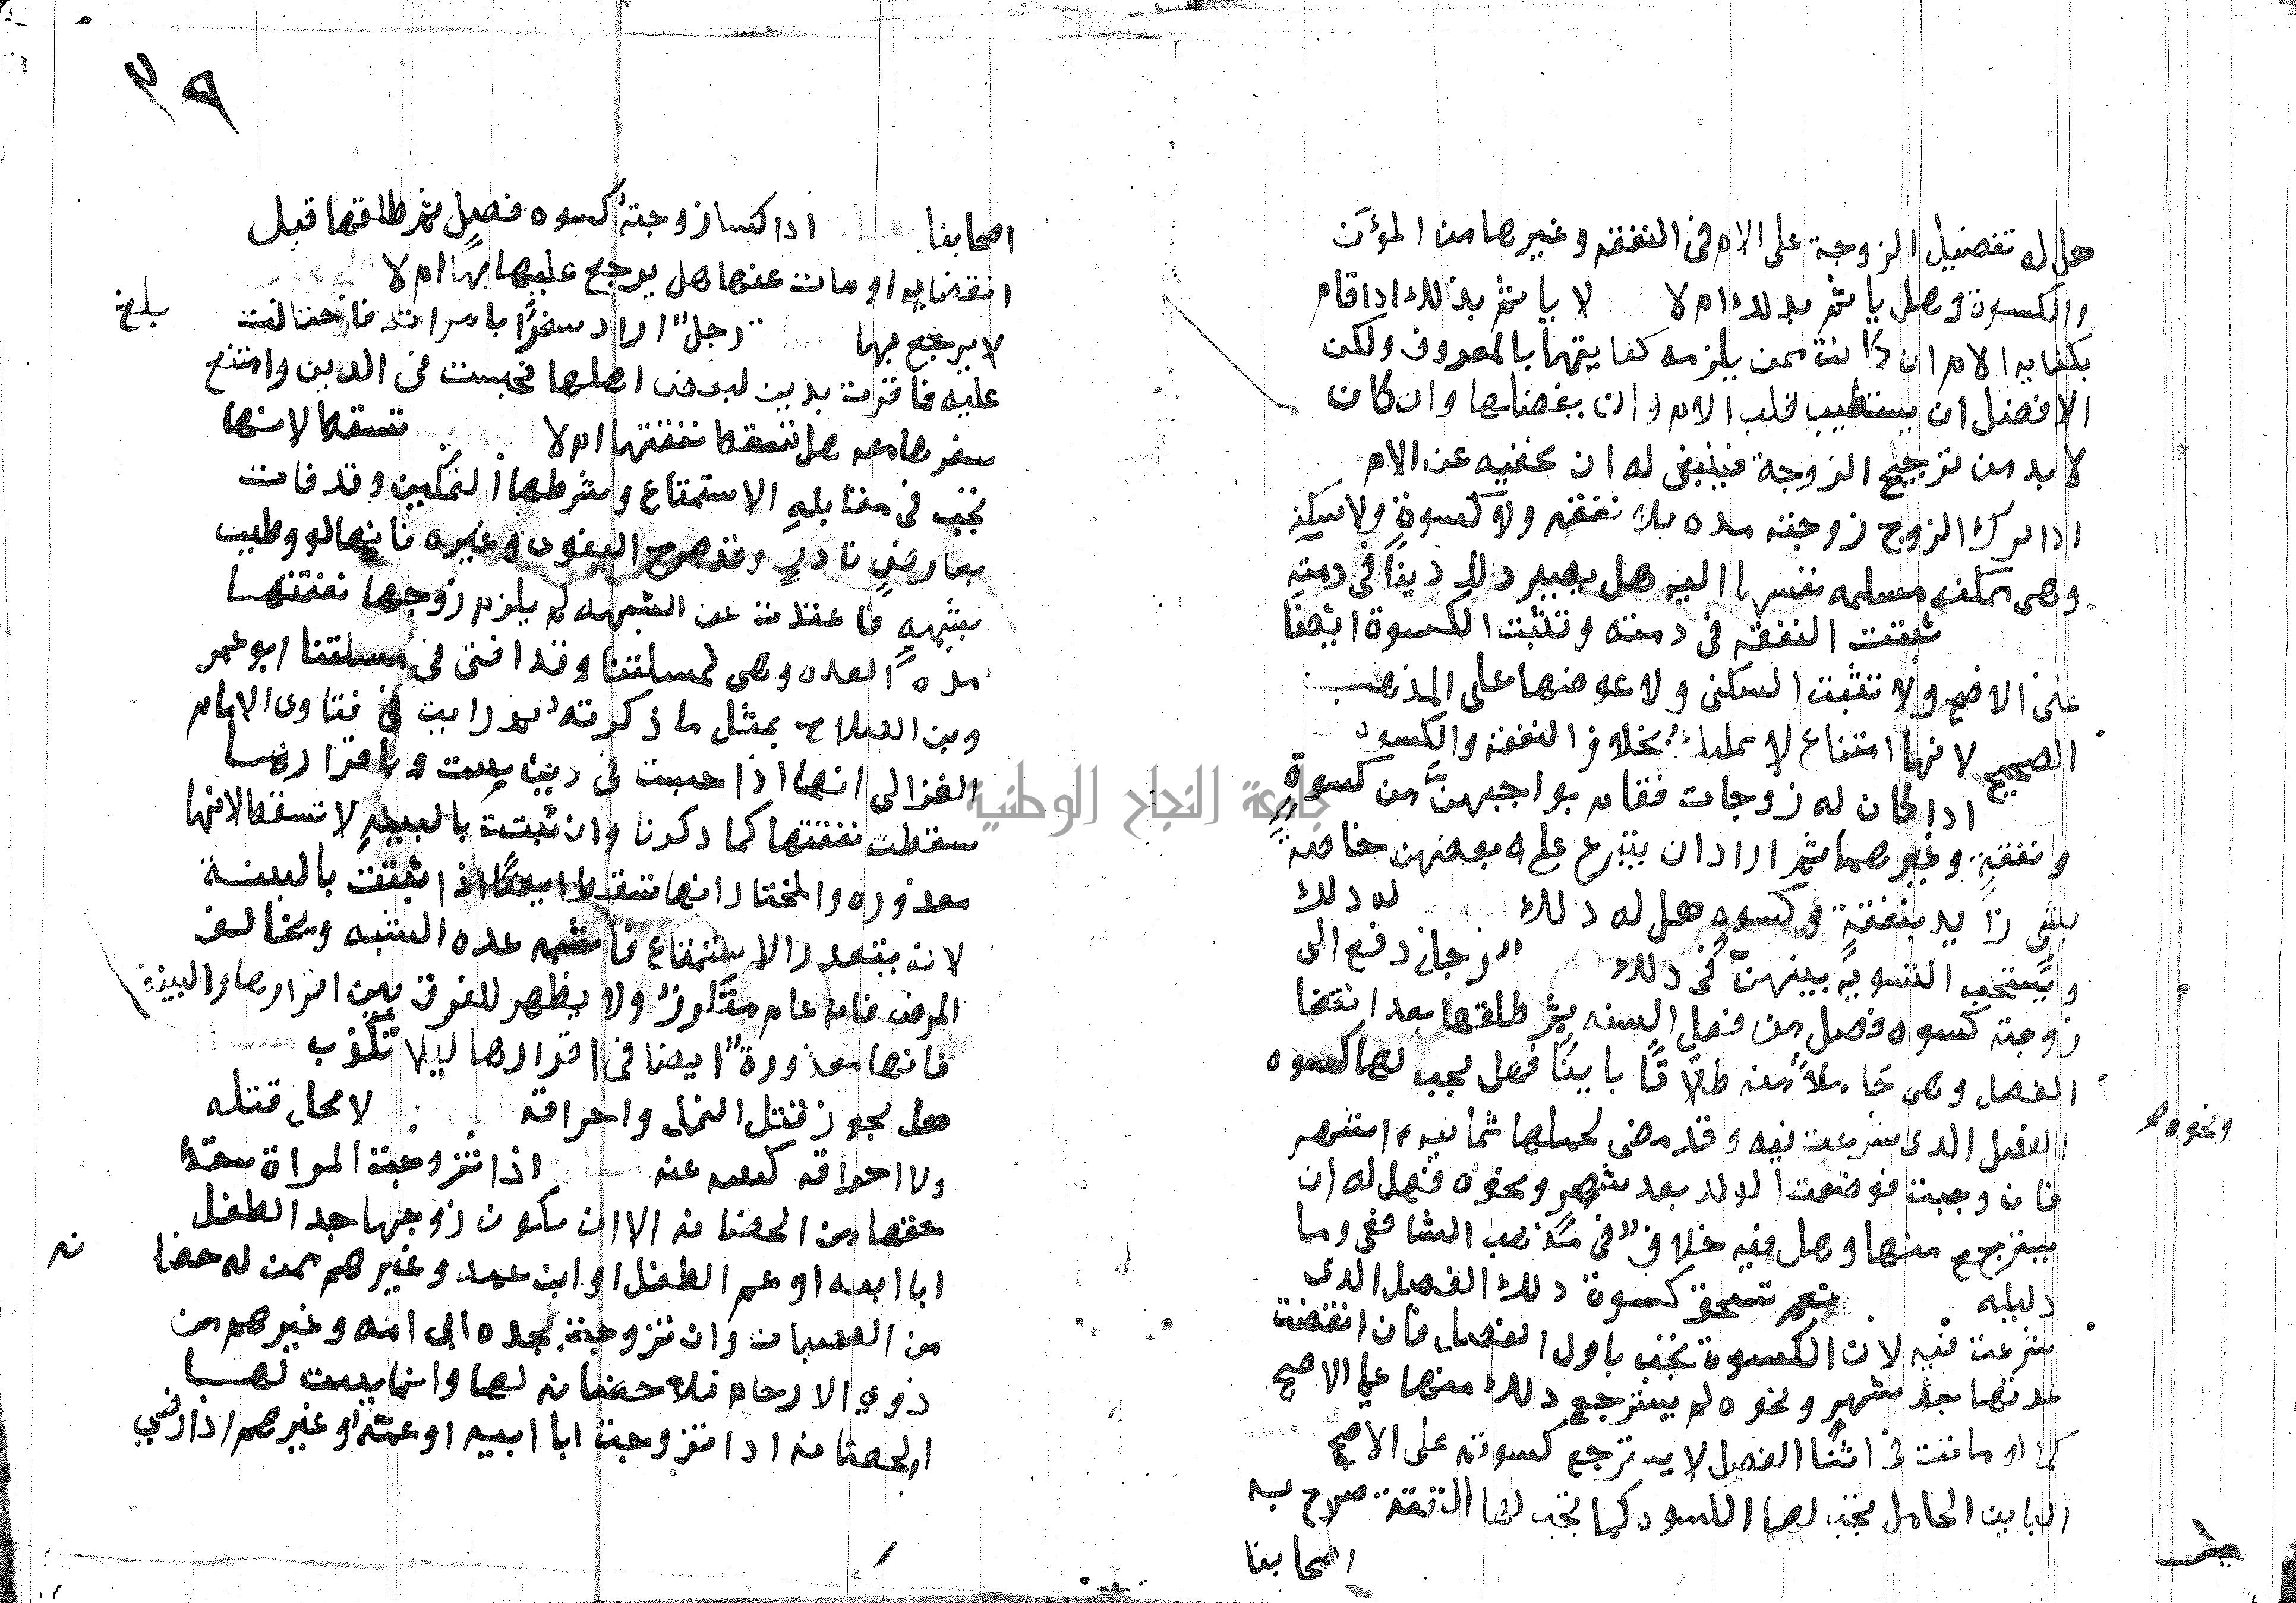 هل له تفضيل الزوجة على الام في النفقه وغيرها من المؤن
والكسوة وهل ياثم بذلك ام لا لا ياثم بذلك اذا قام
بكفايه الام ان كانت ممن يلزمه كفايتها بالمعروف ولكن
الافضل ان يستطيب قلب الام وان يفضلها وان كان
لا بد من ترجيح الزوجة فينبغي له ان يخفيه عن الام
اذا ترك الزوج زوجته مده بلا نفقه ولا كسوة ولا سكنى
وهي ممكنه مسلمه نفسها اليه هل يصير ذلك دينًا في ذمته
ثبتت النفقه في ذمته وتثبت الكسوة ايضًا
على الاصح ولا تثبت السكنى ولا عوضها على المذهب
الصحيح لانها امتناع لا تمليك بخلاف النفقة والكسوه
اذا كان له زوجات فقام بواجبهنَّ من كسوةٍ
ونفقةٍ وغيرهما ثم اراد ان يتبرع على بعضهن خاصة
بشي زايد بنفقةٍ وكسوه هل له ذلك له ذلك
ويُستحب التسوية بينهن في ذلك رجل دفع الى
زوجته كسوه فصل من فصلي السنه ثم طلقها بعد انقضا
الفصل وهي حاملاً منه طلاقًا باينًا فهل يجب لها كسوه
الفصل الذي شرعت فيه وقد مضى لحملها ثمانيه اشهر
فان وجبت فوضعت الولد بعد شهرٍ ونحوه فهل له ان
يسترجع منها وهل فيه خلاف في مذهب الشافعي وما
دليله نعم تستحق كسوة ذلك الفصل الذي
شرعت فيه لان الكسوة تجب باول الفصل فان انقضت
عدتها بعد شهرٍ ونحوه لم يسترجع ذلك منها على الاصح
كما لو ماتت في اثنا الفصل لا يسترجع كسوته على الاصح
البابن الحامل تجب لها الكسوه كما تجب لها النفقة صرح به
اصحابنا
ونحوهم
٣٩
اصحابنا اذا كسا زوجته كسوه فصلٍ ثم طلقها قبل
انقضايه او مات عنها هل يرجع عليها بها ام لا
لا يرجع بها رجل اراد سفرًا بامراته فاحتالت
بلغ
عليه فاقرت بدين لبعض اهلها فحبست في الدين وامتنع
سفرها معه هل تسقط نفقتها ام لا تسقط لانها
تجب في مقابله الاستمتاع وشرطها التمكين وقد فات
بعارضٍ نادرٍ وقد صرح البغوي وغيره بانها لو وطيت
بشبهةٍ فاعتدت عن الشبهه لم يلزم زوجها نفقتها
مدة العده وهي كمسلتنا وقد افتى في مسلتنا ابو عمر
وبن الصلاح بمثل ما ذكرته ورايت في فتاوى الامام
الغزالي انها اذا حبست في دين ثبت باقرارها
سقطت نفقتها كما ذكرنا وان ثبتت بالبينه لا تسقط لانها
معذوره والمختار انها تسقط ايضًا اذا ثبتت بالبينة
لانه يتعذر الاستمتاع فاشبه عده الشبه ويخالف
المرض فانه عام متكرر ولا يظهر للفرق بين اقرارها والبينة
فانها معذورة ايضا في اقرارها ليلا تكذب
هل يجوز قتل النمل واحراقه لا يحل قتله
ولا احراقه اذا تزوجت المراة سقط
حقها من الحضانه الا ان يكون زوجها جد الطفل
ابا ابيه او عم الطفل او ابن عمه وغيرهم ممن له حضا
نه
من العصبات وان تزوجت بجده ابي امه وغيرهم من
ذوي الارحام فلا حضانه لها وانما يثبت لها
الحضانه اذا تزوجت ابا ابيه او عمه او غيرهم اذا رضي
جامعة النجاح الوطنية